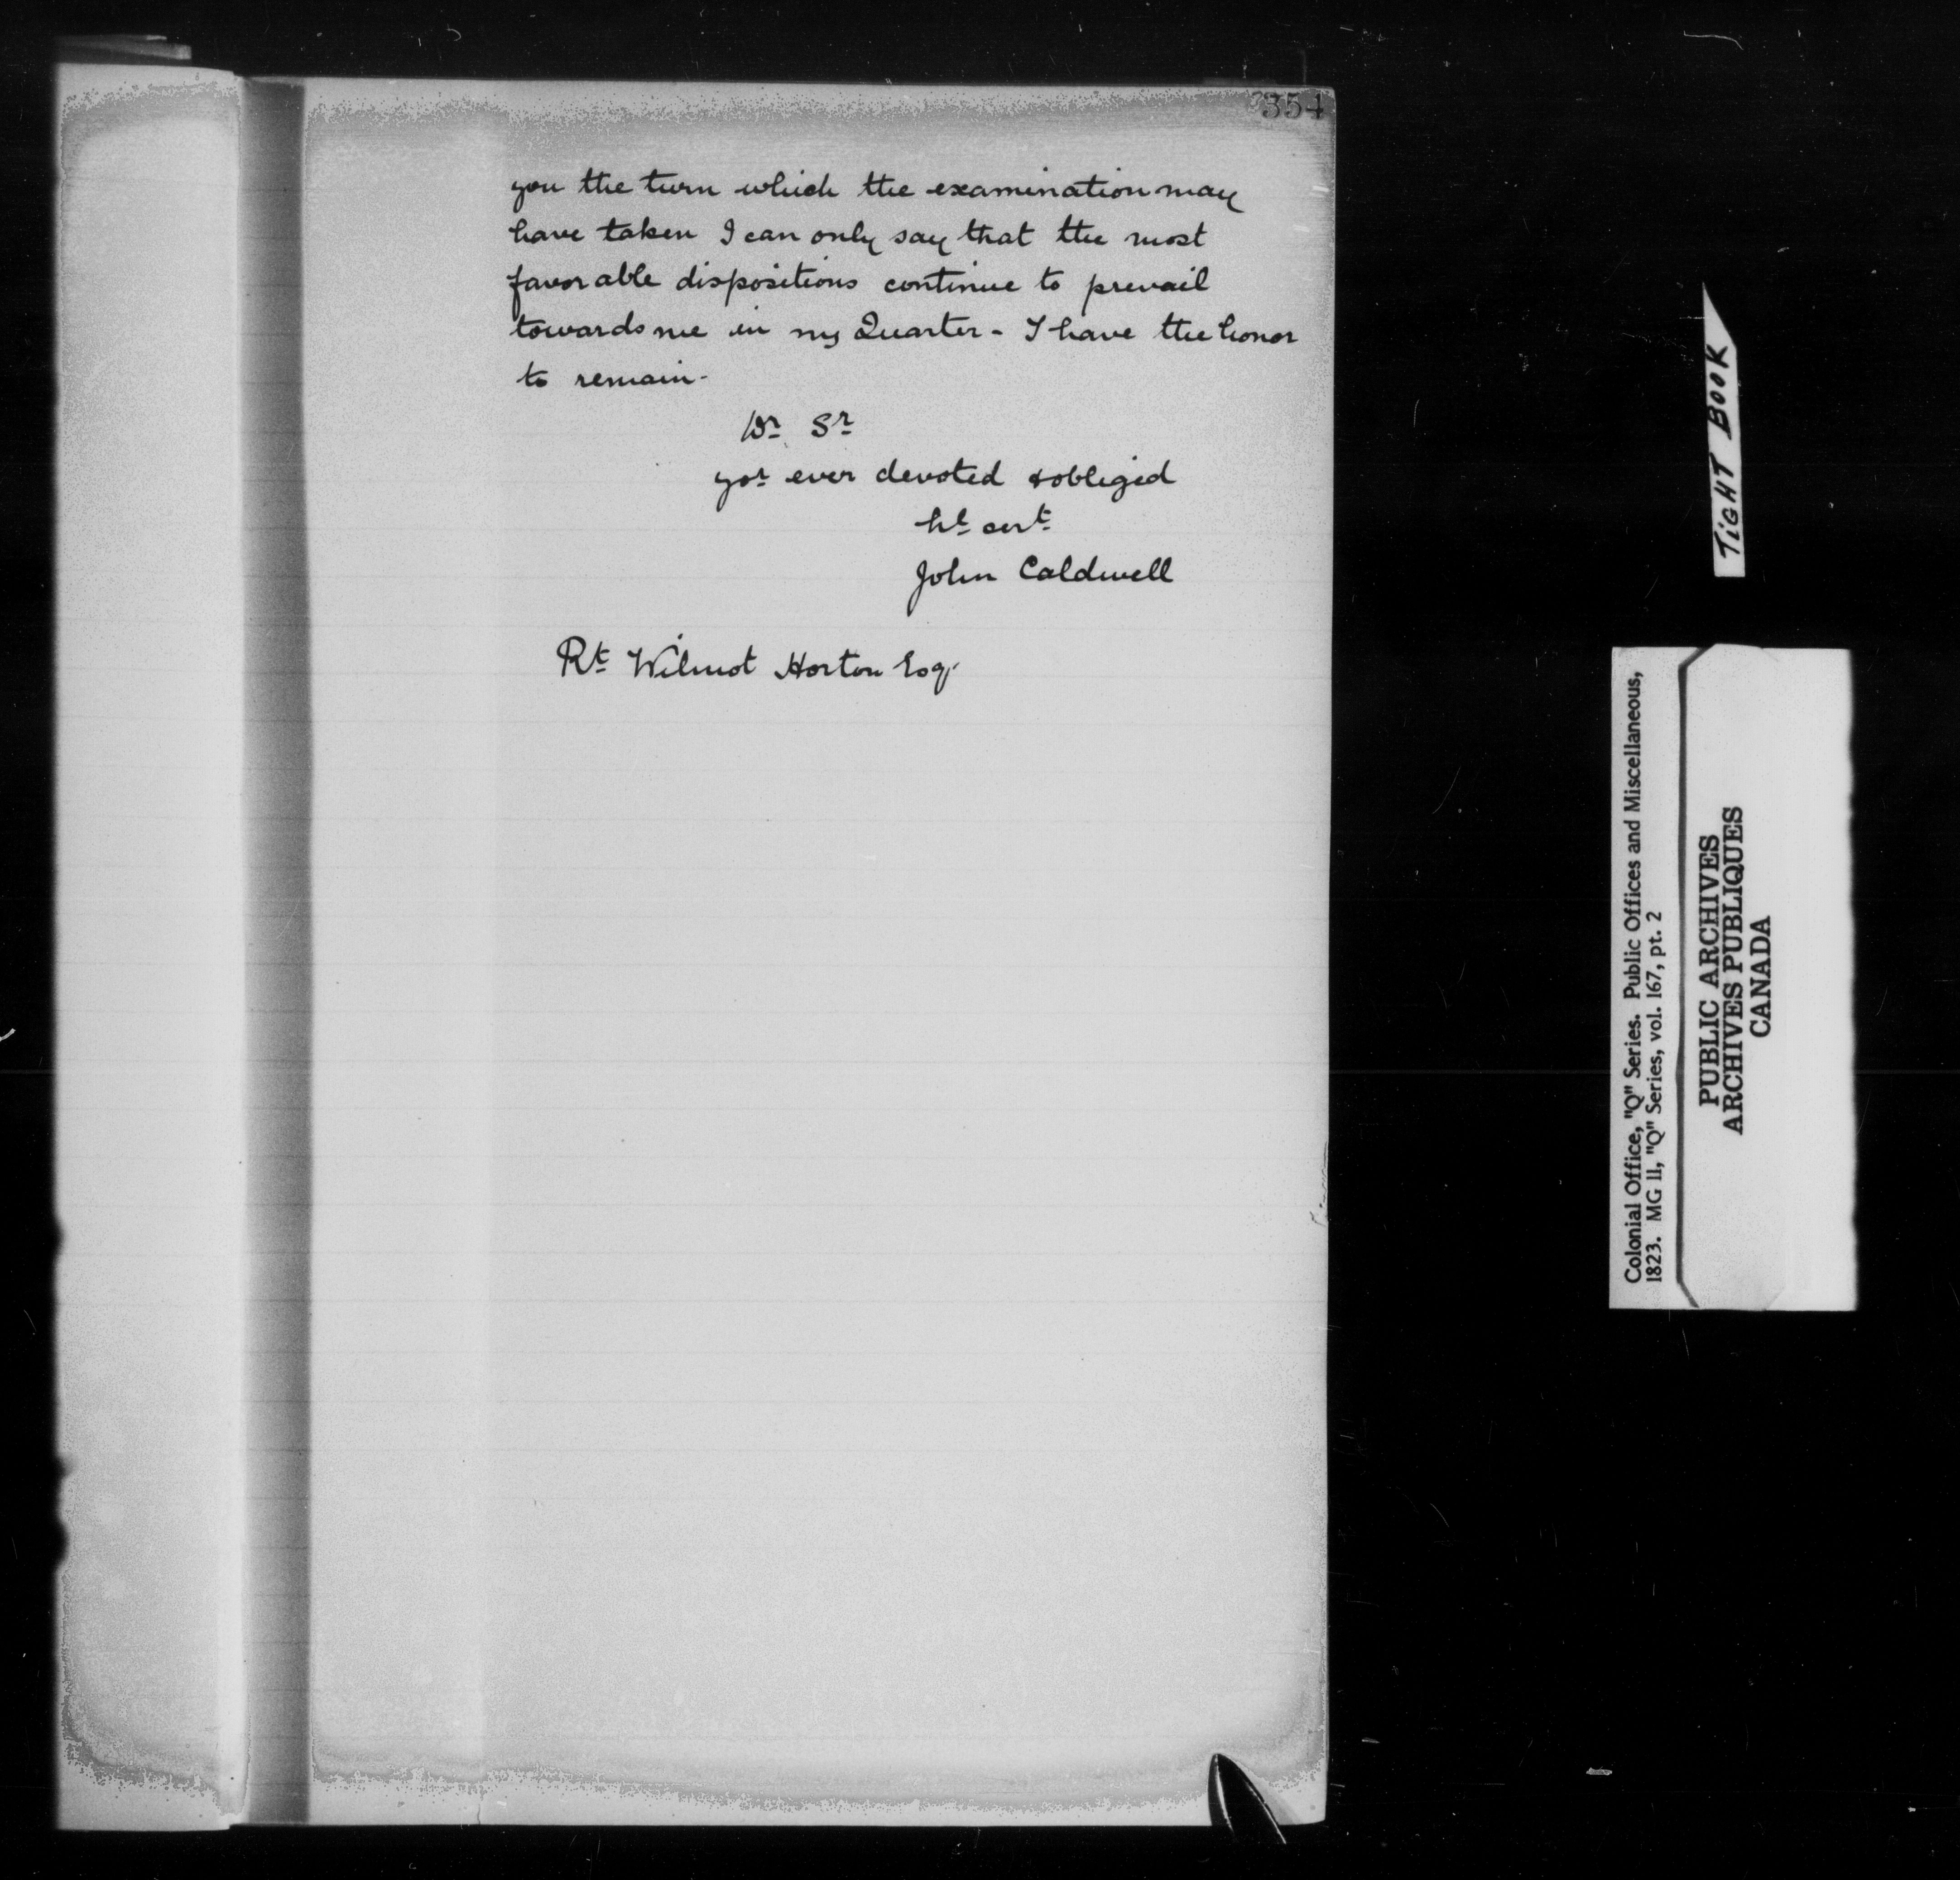 354
you the turn which the examination may
have taken I can only say that the most
favorable dispositions continue to prevail
towards me in my Quarter - I have the honor
to remain -
Dr Sr
yor ever devoted & obliged
hl sert
John Caldwell
Rt Wilmot Horton Esq.
TIGHT BOOK
Colonial Office, "Q" Series. Public Offices and Miscellaneous,
1823. MG 11, "Q" Series, vol. 167, pt. 2
PUBLIC ARCHIVES
ARCHIVES PUBLIQUES
CANADA